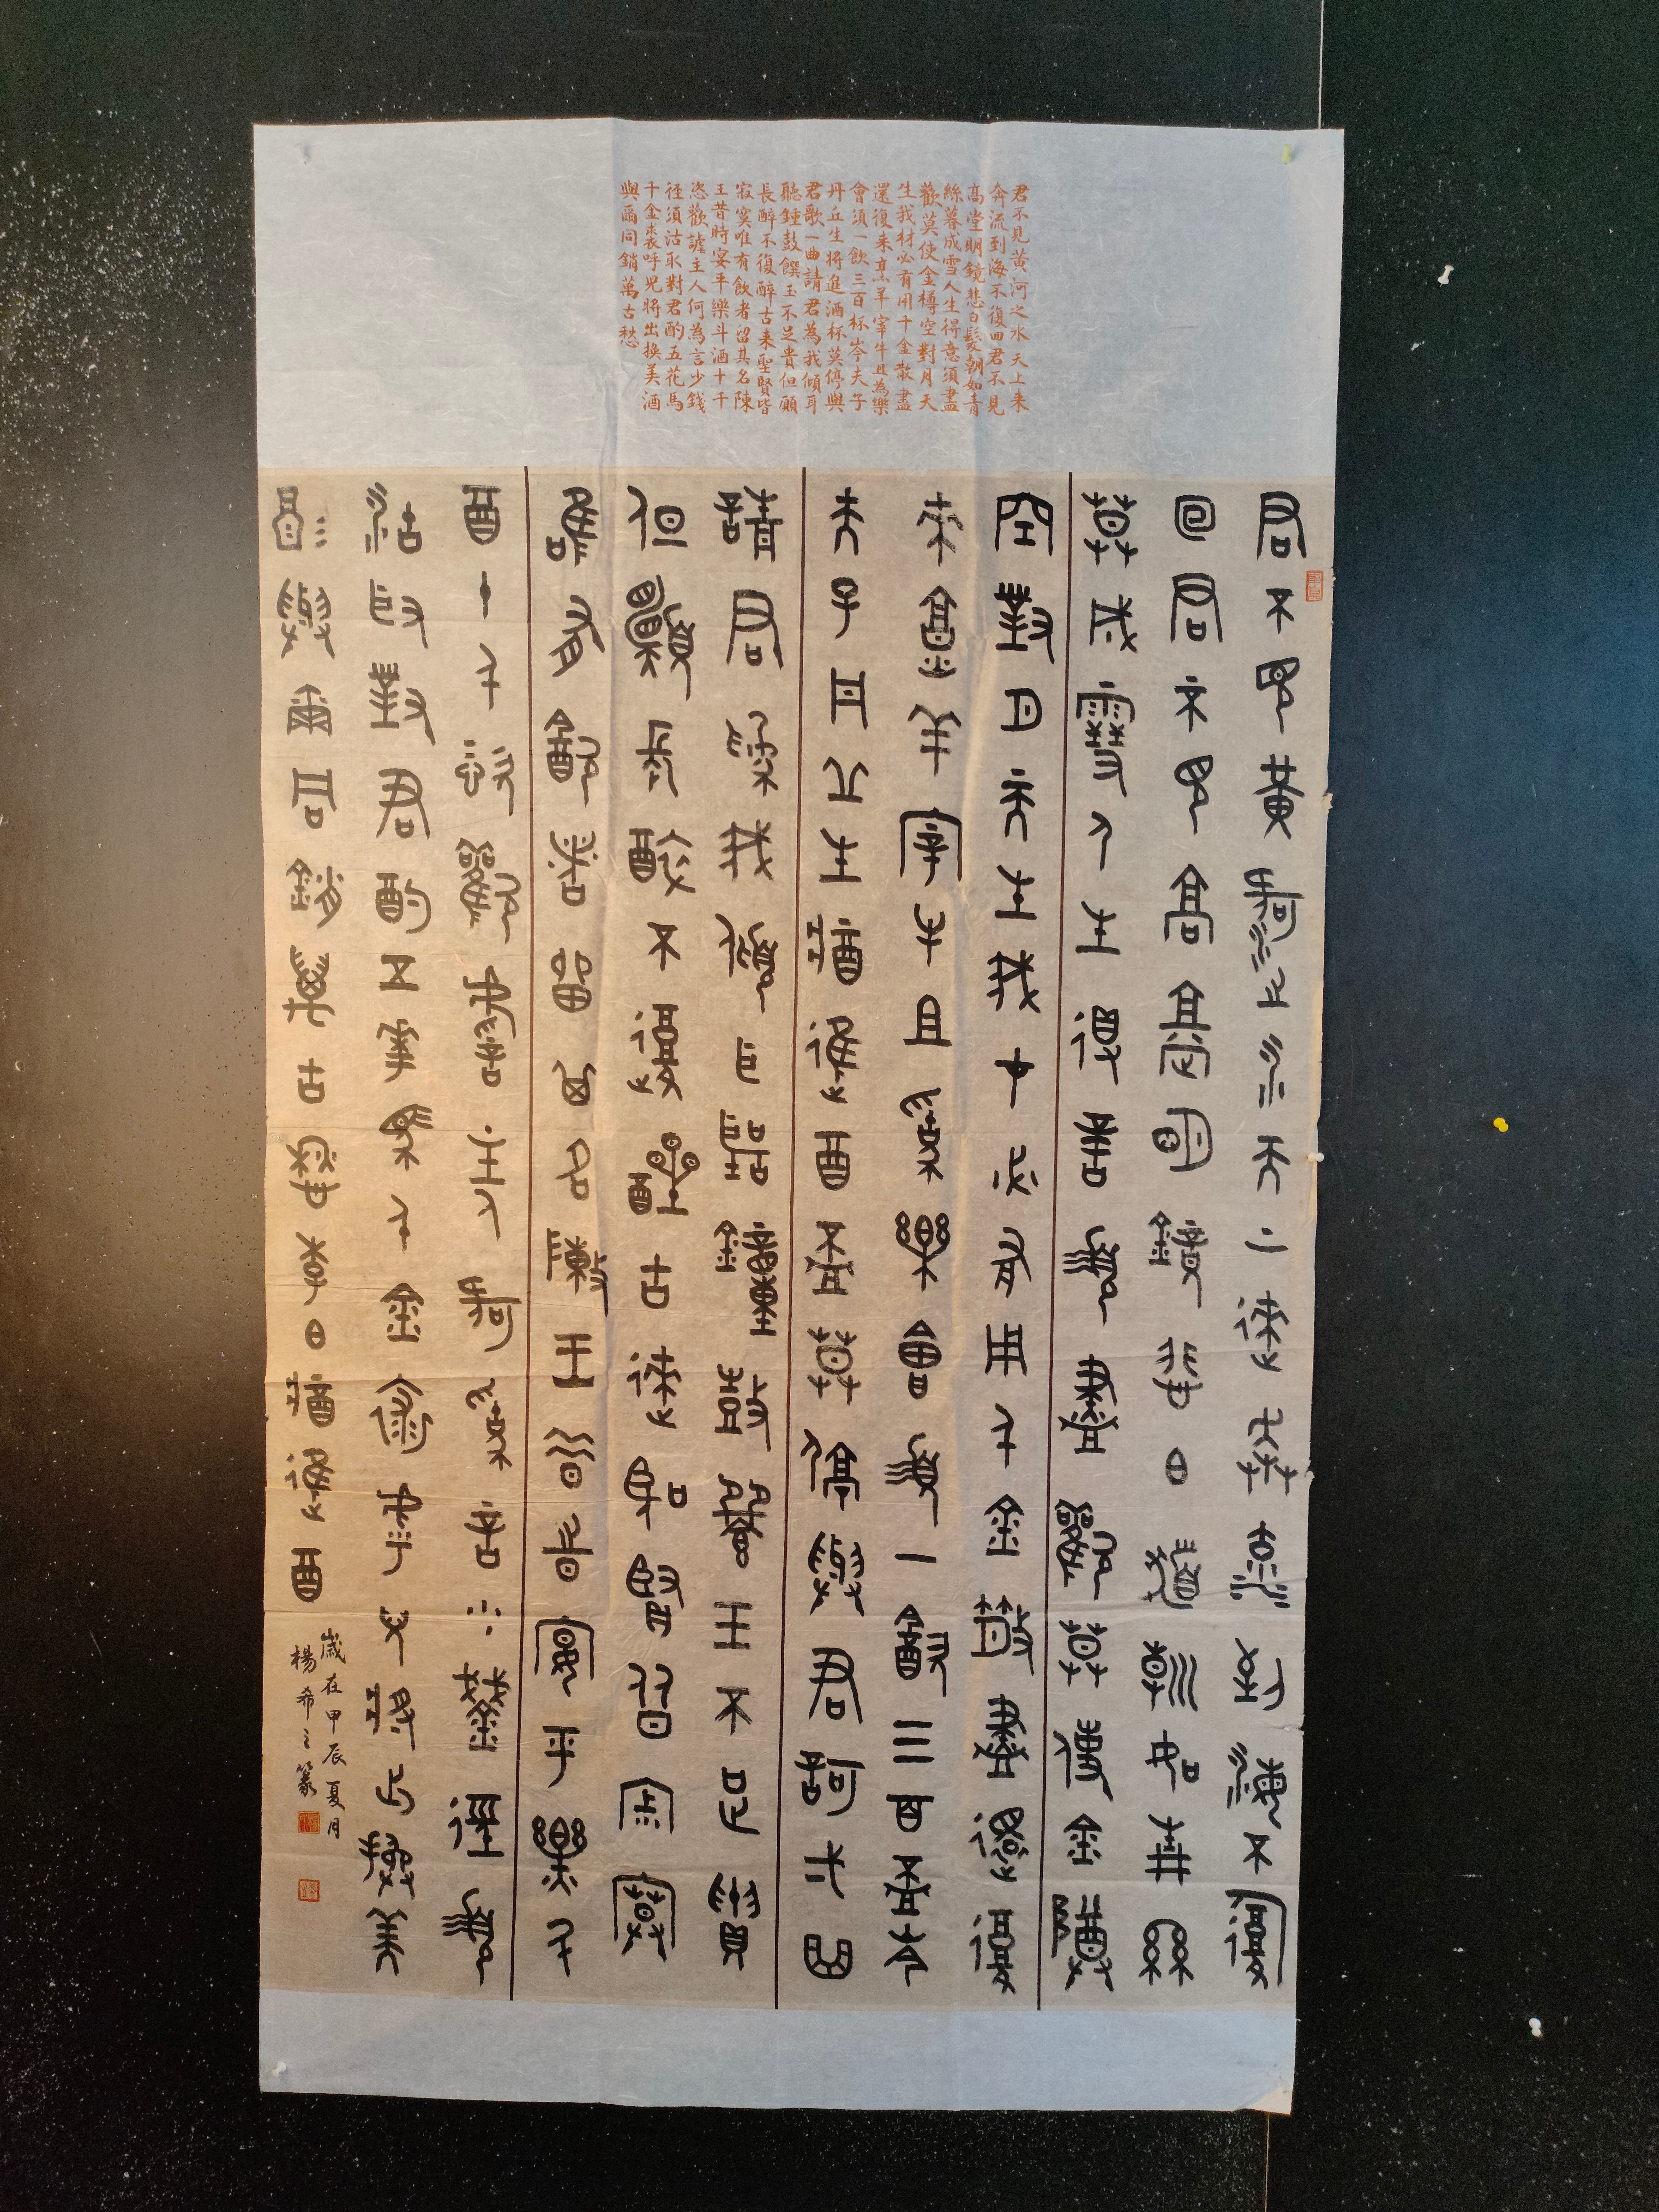 君不見黃河之水天上来
奔流到海不復回君不見
高堂明鏡悲白髮朝如青
絲暮成雪人生得意須盡
歡莫使金樽空對月天
生我材必有用千金散盡
還復来烹羊宰牛且為樂
會須一飲三百杯岑夫子
丹丘生将進酒杯莫停與
君歌一曲請君為我傾耳
聽鍾鼓饌玉不足貴但願
長醉不復醉古来聖賢皆
寂寞唯有飲者留其名陳
王昔時宴平樂斗酒十千
恣歡謔主人何為言少錢
径須沽取對君酌五花馬
千金裘呼児将出換美酒
與爾同銷萬古愁
君不見黃河之水天上來奔流到海不復
回君不見高堂明鏡悲白髮朝如青絲
莫成雪人生得意須盡歡莫使金樽
空對月天生我才必有用千金散盡還復
來烹羊宰牛且為樂會須一飲三百杯岑
夫子丹丘生將進酒杯莫停與君歌一曲
請君為我傾耳聽鐘鼓饌玉不足貴
但願長醉不復醒古來聖賢皆寂寞
唯有飲者留其名陳王昔時宴平樂斗
酒十千恣歡謔主人何為言少錢徑須
沽取對君酌五花馬千金裘呼兒將出換美
酒與爾同銷萬古愁李白將進酒
歲在甲辰夏月
楊希之篆